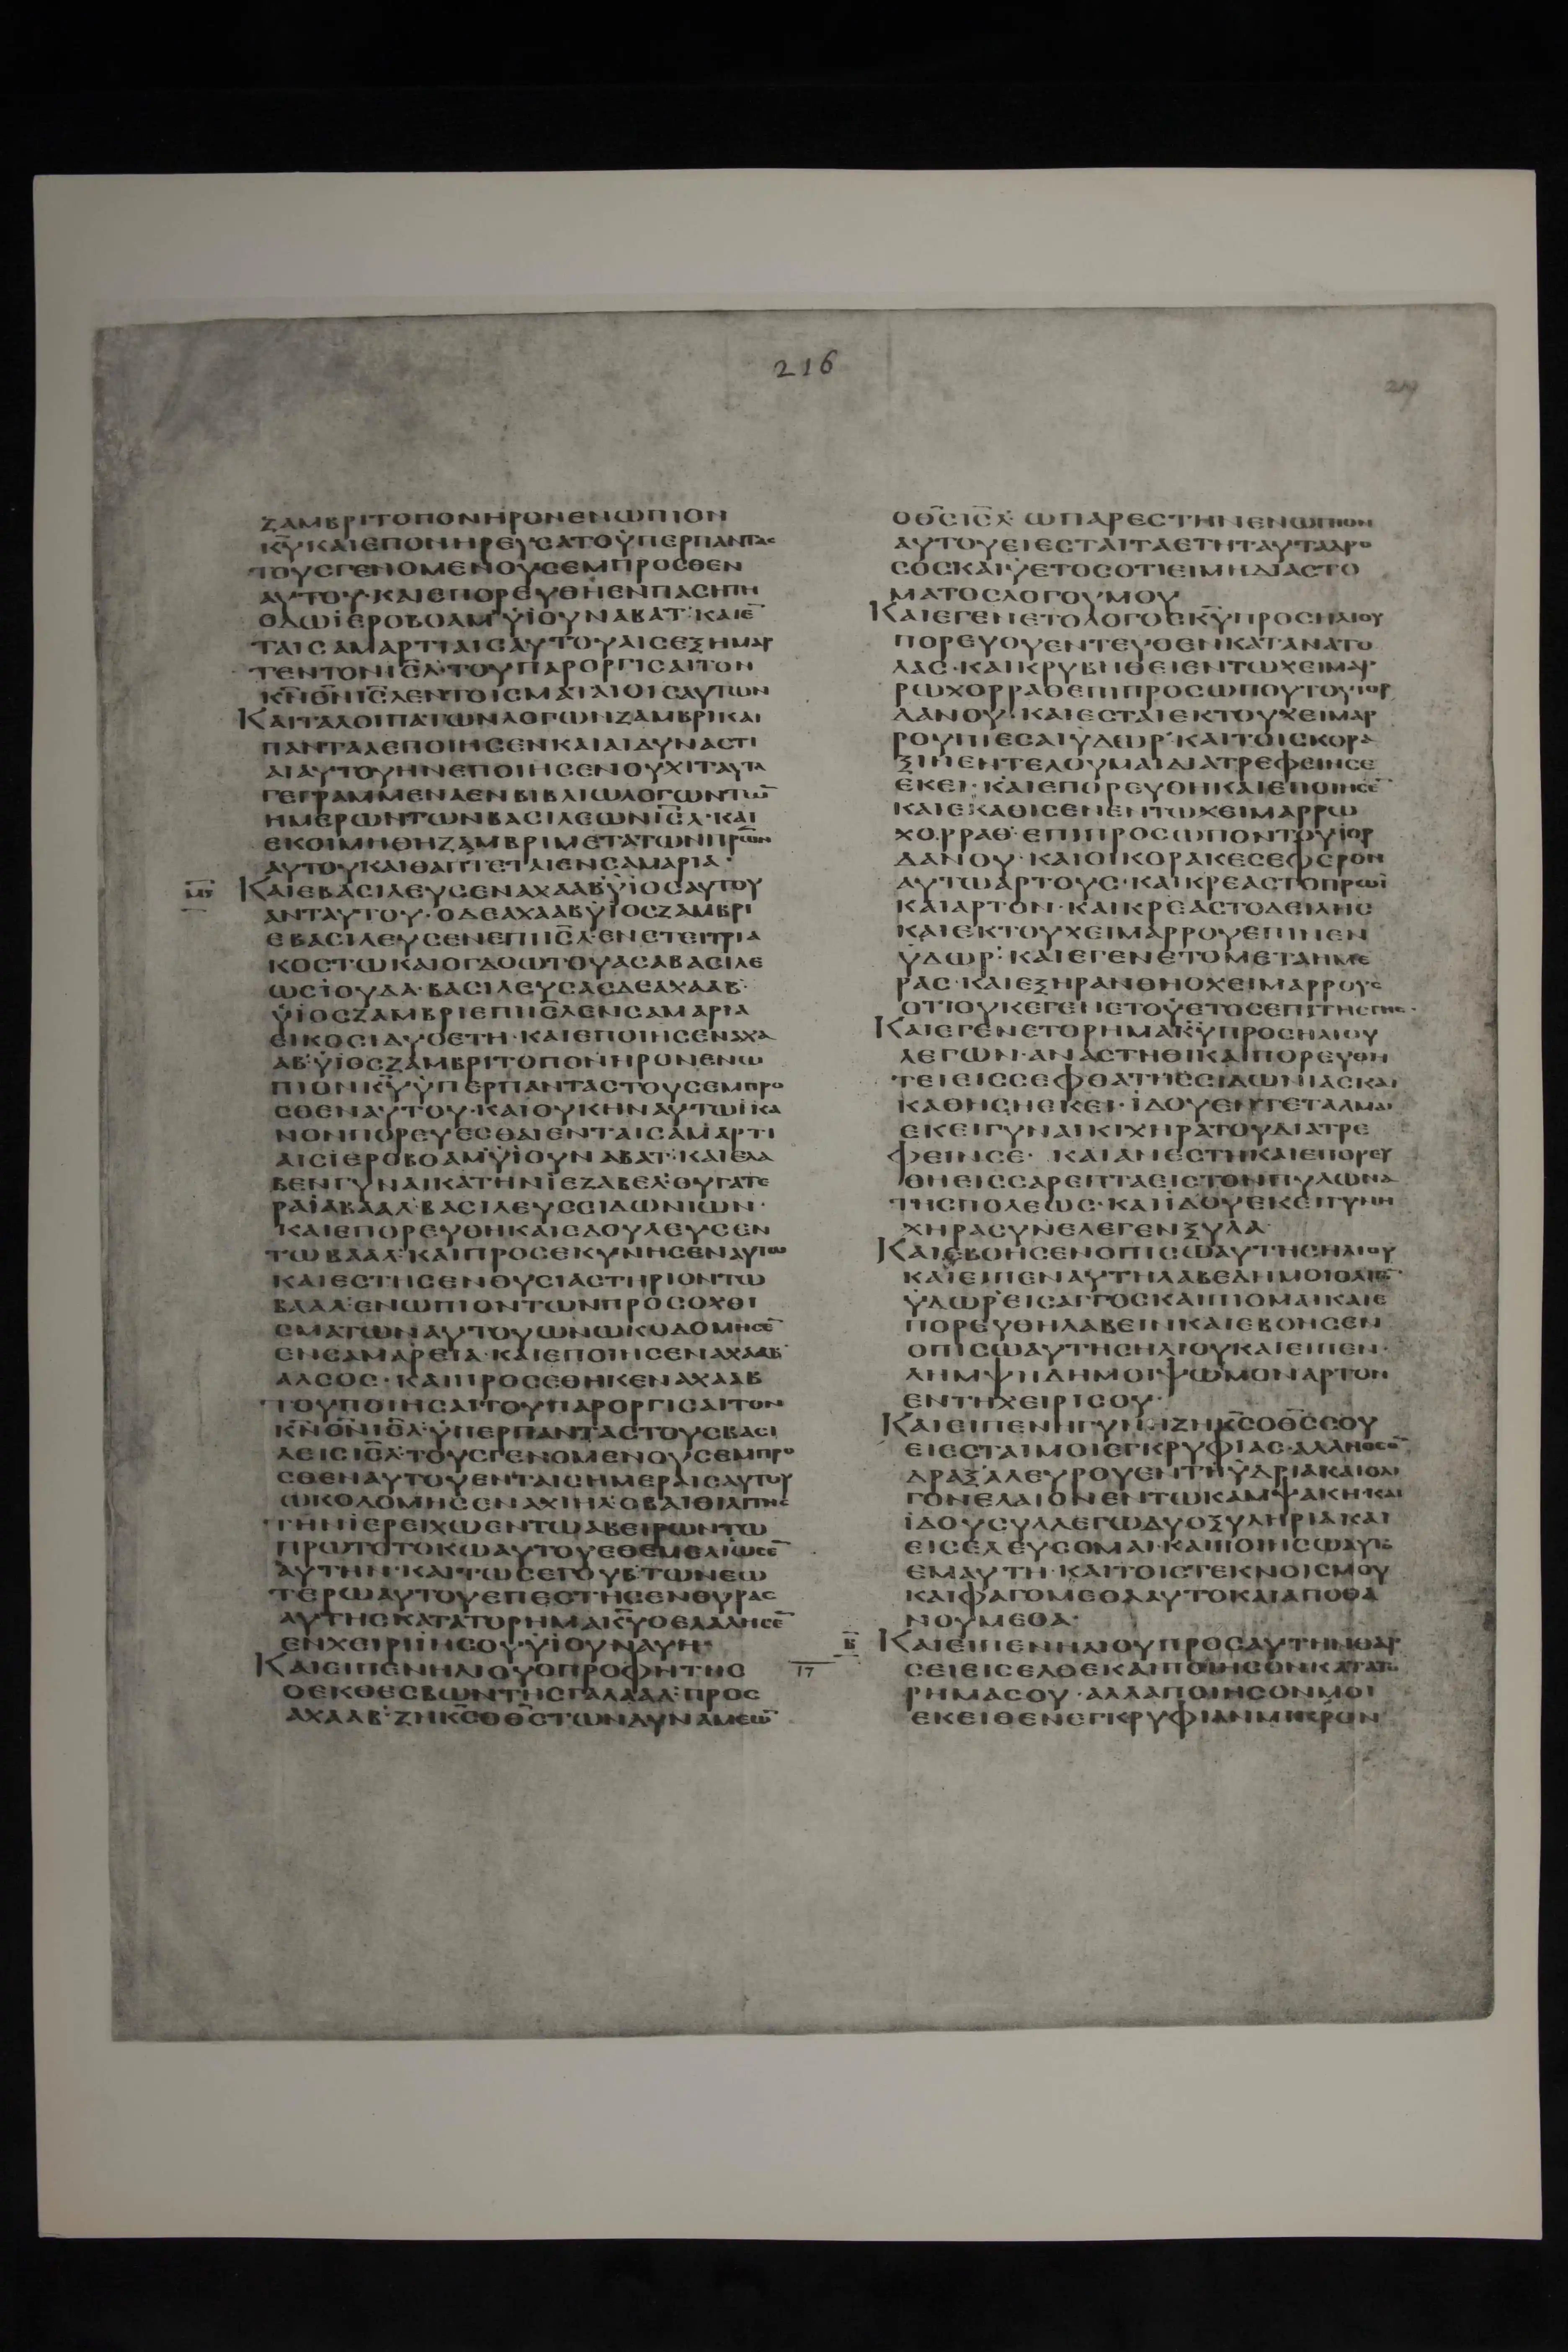 216
217
ΖΑΜΒΡΙΤΟΠΟΝΗΡΟΝΕΝΩΠΙΟΝ
Κ̅Υ̅ΚΑΙΕΠΟΝΗΡΕΥΣΑΤΟΫΠΕΡΠΑΝΤΑΣ
ΤΟΥΣΓΕΝΟΜΕΝΟΥΣΕΜΠΡΟΣΘΕΝ
ΑΥΤΟΥ·ΚΑΙΕΠΟΡΕΥΘΗΕΝΠΑΣΗΤΗ
ΟΔΩΪΕΡΟΒΟΑΜ᾿ΫΪΟΥΝΑΒΑΤ᾿·ΚΑΙΕ̅
ΤΑΙΣΑΜΑΡΤΙΑΙΣΑΥΤΟΥΑΙΣΕΞΗΜΑΡ
ΤΕΝΤΟΝΙ̅Σ̅Λ̅·ΤΟΥΠΑΡΟΡΓΙΣΑΙΤΟΝ
Κ̅Ν̅Θ̅Ν̅Ι̅Σ̅Λ̅ΕΝΤΟΙΣΜΑΤΑΙΟΙΣΑΥΤΩΝ
ΚΑΙΤΑΛΟΙΠΑΤΩΝΛΟΓΩΝΖΑΜΒΡΙΚΑΙ
ΠΑΝΤΑΑΕΠΟΙΗΣΕΝΚΑΙΑΙΔΥΝΑΣΤΙ
ΑΙΑΥΤΟΥΗΝΕΠΟΙΗΣΕΝΟΥΧΙΤΑΥΤΑ
ΓΕΓΡΑΜΜΕΝΑΕΝΒΙΒΛΙΩΛΟΓΩΝΤΩ̅
ΗΜΕΡΩΝΤΩΝΒΑΣΙΛΕΩΝΙ̅Σ̅Λ̅·ΚΑΙ
ΕΚΟΙΜΗΘΗΖΑΜΒΡΙΜΕΤΑΤΩΝΠΡ̅Ω̅Ν̅
ΑΥΤΟΥΚΑΙΘΑΠΤΕΤΑΙΕΝΣΑΜΑΡΙΑ·
ΚΑΙΕΒΑΣΙΛΕΥΣΕΝΑΧΑΑΒ᾿ΫΪΟΣΑΥΤΟΥ
ΑΝΤΑΥΤΟΥ·ΟΔΕΑΧΑΑΒΫΪΟΣΖΑΜΒΡΙ
ΕΒΑΣΙΛΕΥΣΕΝΕΠΙΙ̅Σ̅Λ̅·ΕΝΕΤΕΙΤΡΙΑ
ΚΟΣΤΩΚΑΙΟΓΔΟΩΤΟΥΑΣΑΒΑΣΙΛΕ
ΩΣΪΟΥΔΑ·ΒΑΣΙΛΕΥΣΑΣΔΕΑΧΑΑΒ᾿
ΫΪΟΣΖΑΜΒΡΙΕΠΙΙ̅Σ̅Λ̅ΕΝΣΑΜΑΡΙΑ
ΕΙΚΟΣΙΔΥΟΕΤΗ·ΚΑΙΕΠΟΙΗΣΕΝΑΧΑ
ΑΒ᾿ΫΪΟΣΖΑΜΒΡΙΤΟΠΟΝΗΡΟΝΕΝΩ
ΠΙΟΝΚ̅Υ̅ΫΠΕΡΠΑΝΤΑΣΤΟΥΣΕΜΠΡΟ
ΣΘΕΝΑΥΤΟΥ·ΚΑΙΟΥΚΗΝΑΥΤΩΪΚΑ
ΝΟΝΠΟΡΕΥΕΣΘΑΙΕΝΤΑΙΣΑΜΑΡΤΙ
ΑΙΣΪΕΡΟΒΟΑΜ᾿ΫΪΟΥΝΑΒΑΤ᾿·ΚΑΙΕΛΑ
ΒΕΝΓΥΝΑΙΚΑΤΗΝΪΕΖΑΒΕΛ᾿ΘΥΓΑΤΕ
ΡΑΪΑΒΑΑΛ᾿ΒΑΣΙΛΕΥΣΣΙΔΩΝΙΩΝ·
ΚΑΙΕΠΟΡΕΥΘΗΚΑΙΕΔΟΥΛΕΥΣΕΝ
ΤΩΒΑΑΛ᾿ΚΑΙΠΡΟΣΕΚΥΝΗΣΕΝΑΥΤΩ
ΚΑΙΕΣΤΗΣΕΝΘΥΣΙΑΣΤΗΡΙΟΝΤΩ
ΒΑΑΛ᾿ΕΝΩΠΙΟΝΤΩΝΠΡΟΣΟΧΘΙ
ΣΜΑΤΩΝΑΥΤΟΥΩΝΩΚΟΔΟΜΗΣΕ̅
ΕΝΣΑΜΑΡΕΙΑ·ΚΑΙΕΠΟΙΗΣΕΝΑΧΑΑΒ᾿
ΑΛΣΟΣ·ΚΑΙΠΡΟΣΕΘΗΚΕΝΑΧΑΑΒ
ΤΟΥΠΟΙΗΣΑΙΤΟΥΠΑΡΟΡΓΙΣΑΙΤΟΝ
Κ̅Ν̅Θ̅Ν̅Ι̅Σ̅Λ̅·ΫΠΕΡΠΑΝΤΑΣΤΟΥΣΒΑΣΙ
ΛΕΙΣΙ̅Σ̅Λ̅·ΤΟΥΣΓΕΝΟΜΕΝΟΥΣΕΜΠΡΟ
ΣΘΕΝΑΥΤΟΥΕΝΤΑΙΣΗΜΕΡΑΙΣΑΥΤΟΥ
ΩΚΟΔΟΜΗΣΕΝΑΧΙΗΛ᾿ΟΒΑΙΘΙΛΙΤΗΣ
ΤΗΝΪΕΡΕΙΧΩΕΝΤΩΑΒΕΙΡΩΝΤΩ
ΠΡΩΤΟΤΟΚΩΑΥΤΟΥΕΘΕΜΕΛΙΩΣΕ̅
ΑΥΤΗΝ·ΚΑΙΤΩΣΕΓΟΥΒ᾿ΤΩΝΕΩ
ΤΕΡΩΑΥΤΟΥΕΠΕΣΤΗΣΕΝΘΥΡΑΣ
ΑΥΤΗΣΚΑΤΑΤΟΡΗΜΑΚ̅Υ̅ΟΕΛΑΛΗΣΕ̅
ΕΝΧΕΙΡΙΪΗΣΟΥ·ΫΪΟΥΝΑΥΗ·
ΚΑΙΕΙΠΕΝΗΛΙΟΥΟΠΡΟΦΗΤΗΣ
17
ΟΕΚΘΕΣΒΩΝΤΗΣΓΑΛΑΑΔ᾿ΠΡΟΣ
ΑΧΑΑΒ᾿·ΖΗΚ̅Σ̅Ο̅Θ̅Σ̅ΤΩΝΔΥΝΑΜΕΩ̅
ΟΘ̅Σ̅Ι̅Σ̅Λ̅·ΩΠΑΡΕΣΤΗΝΕΝΩΠΙΟΝ
ΑΥΤΟΥΕΙΕΣΤΑΙΤΑΕΤΗΤΑΥΤΑΔΡΟ
ΣΟΣΚΑΙΫΕΤΟΣΟΤΙΕΙΜΗΔΙΑΣΤΟ
ΜΑΤΟΣΛΟΓΟΥΜΟΥ
ΚΑΙΕΓΕΝΕΤΟΛΟΓΟΣΚ̅Υ̅ΠΡΟΣΗΛΙΟΥ
ΠΟΡΕΥΟΥΕΝΤΕΥΘΕΝΚΑΤΑΝΑΤΟ
ΛΑΣ·ΚΑΙΚΡΥΒΗΘΕΙΕΝΤΩΧΕΙΜΑΡ
ΡΩΧΟΡΡΑΘΕΠΙΠΡΟΣΩΠΟΥΤΟΥΪΟΡ
ΔΑΝΟΥ·ΚΑΙΕΣΤΑΙΕΚΤΟΥΧΕΙΜΑΡ
ΡΟΥΠΙΕΣΑΙΫΔΩΡ᾿ΚΑΙΤΟΙΣΚΟΡΑ
ΞΙΝΕΝΤΕΛΟΥΜΑΙΔΙΑΤΡΕΦΕΙΝΣΕ
ΕΚΕΙ·ΚΑΙΕΠΟΡΕΥΘΗΚΑΙΕΠΟΙΗΣΕ̅
ΚΑΙΕΚΑΘΙΣΕΝΕΝΤΩΧΕΙΜΑΡΡΩ
ΧΟΡΡΑΘ᾿ΕΠΙΠΡΟΣΩΠΟΝΤΟΥΪΟΡ
ΔΑΝΟΥ·ΚΑΙΟΙΚΟΡΑΚΕΣΕΦΕΡΟΝ
ΑΥΤΩΑΡΤΟΥΣ·ΚΑΙΚΡΕΑΣΤΟΠΡΩΪ
ΚΑΙΑΡΤΟΝ·ΚΑΙΚΡΕΑΣΤΟΔΕΙΛΗΣ
ΚΑΙΕΚΤΟΥΧΕΙΜΑΡΡΟΥΕΠΙΝΕΝ
ΫΔΩΡ᾿·ΚΑΙΕΓΕΝΕΤΟΜΕΤΑΗΜΕ
ΡΑΣ·ΚΑΙΕΞΗΡΑΝΘΗΟΧΕΙΜΑΡΡΟΥΣ
ΟΤΙΟΥΚΕΓΕΝΕΤΟΫΕΤΟΣΕΠΙΤΗΣΓΗΣ·
ΚΑΙΕΓΕΝΕΤΟΡΗΜΑΚ̅Υ̅ΠΡΟΣΗΛΙΟΥ
ΛΕΓΩΝ·ΑΝΑΣΤΗΘΙΚΑΙΠΟΡΕΥΘΗ
ΤΕΙΕΙΣΣΕΦΘΑΤΗΣΣΙΔΩΝΙΑΣΚΑΙ
ΚΑΘΗΣΗΕΚΕΙ·ΪΔΟΥΕΝΤΕΤΑΛΜΑΙ
ΕΚΕΙΓΥΝΑΙΚΙΧΗΡΑΤΟΥΔΙΑΤΡΕ
ΦΕΙΝΣΕ·ΚΑΙΑΝΕΣΤΗΚΑΙΕΠΟΡΕΥ
ΘΗΕΙΣΣΑΡΕΠΤΑΕΙΣΤΟΝΠΥΛΩΝΑ
ΤΗΣΠΟΛΕΩΣ·ΚΑΙΪΔΟΥΕΚΕΙΓΥΝΗ
ΧΗΡΑΣΥΝΕΛΕΓΕΝΞΥΛΑ·
ΚΑΙΕΒΟΗΣΕΝΟΠΙΣΩΑΥΤΗΣΗΛΙΟΥ
ΚΑΙΕΙΠΕΝΑΥΤΗΛΑΒΕΔΗΜΟΙΟΛΙΓΟ̅
ΫΔΩΡ᾿ΕΙΣΑΓΓΟΣΚΑΙΠΙΟΜΑΙΚΑΙΕ
ΠΟΡΕΥΘΗΛΑΒΕΙΝΚΑΙΕΒΟΗΣΕΝ
ΟΠΙΣΩΑΥΤΗΣΗΛΙΟΥΚΑΙΕΙΠΕΝ·
ΛΗΜΨΗΔΗΜΟΙΨΩΜΟΝΑΡΤΟΝ
ΕΝΤΗΧΕΙΡΙΣΟΥ·
ΚΑΙΕΙΠΕΝΗΓΥΝΗΖΗΚ̅Σ̅ΟΘ̅Σ̅ΣΟΥ
ΕΙΕΣΤΑΙΜΟΙΕΓΚΡΥΦΙΑΣ·ΑΛΛΗΟΣΟ̅
ΔΡΑΞ᾿ΑΛΕΥΡΟΥΕΝΤΗΫΔΡΙΑΚΑΙΟΛΙ
ΓΟΝΕΛΑΙΟΝΕΝΤΩΚΑΜΨΑΚΗ·ΚΑΙ
ΪΔΟΥΣΥΛΛΕΓΩΔΥΟΞΥΛΗΡΙΑΚΑΙ
ΕΙΣΕΛΕΥΣΟΜΑΙ·ΚΑΙΠΟΙΗΣΩΑΥΤΟ
ΕΜΑΥΤΗ·ΚΑΙΤΟΙΣΤΕΚΝΟΙΣΜΟΥ
ΚΑΙΦΑΓΟΜΕΘΑΑΥΤΟΚΑΙΑΠΟΘΑ
ΝΟΥΜΕΘΑ·
Β̅
ΚΑΙΕΙΠΕΝΗΛΙΟΥΠΡΟΣΑΥΤΗΝΘΑΡ
ΣΕΙΕΙΣΕΛΘΕΚΑΙΠΟΙΗΣΟΝΚΑΤΑΤΟ
ΡΗΜΑΣΟΥ·ΑΛΛΑΠΟΙΗΣΟΝΜΟΙ
ΕΚΕΙΘΕΝΕΓΚΡΥΦΙΑΝΜΙΚΡΟΝ